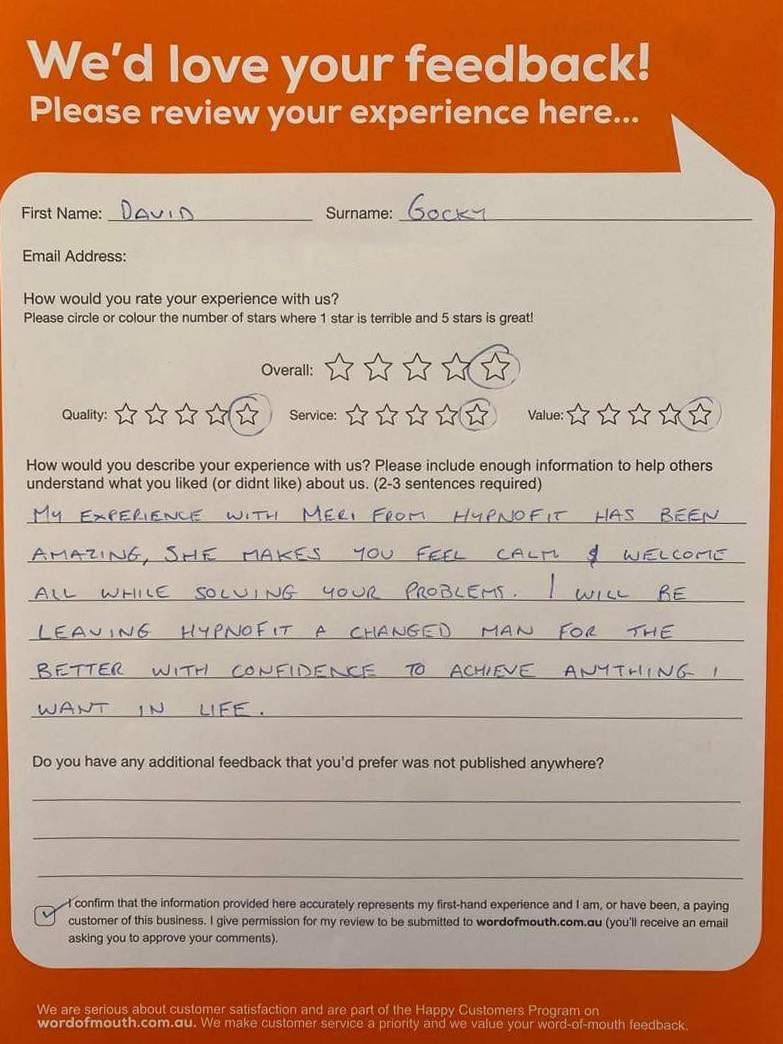 We'd love your feedback!
Please review your experience here...
First Name: DAVID Surname: GOCKY
Email Address:
How would you rate your experience with us?
Please circle or colour the number of stars where 1 star is terrible and 5 stars is great!
Overall:
Quality: Service: Value:
How would you describe your experience with us? Please include enough information to help others
understand what you liked (or didnt like) about us. (2-3 sentences required)
MY EXPERIENCE WITH MERI FROM HYPNOFIT HAS BEEN
AMAZING, SHE MAKES YOU FEEL CALM & WELCOME
ALL WHILE SOLVING YOUR PROBLEMS. I WILL BE
LEAVING HYPNOFIT A CHANGED MAN FOR THE
BETTER WITH CONFIDENCE TO ACHIEVE ANYTHING I
WANT IN LIFE.
Do you have any additional feedback that you'd prefer was not published anywhere?
I confirm that the information provided here accurately represents my first-hand experience and I am, or have been, a paying
customer of this business. I give permission for my review to be submitted to wordofmouth.com.au (you'll receive an email
asking you to approve your comments).
We are serious about customer satisfaction and are part of the Happy Customers Program on
wordofmouth.com.au. We make customer service a priority and we value your word-of-mouth feedback.